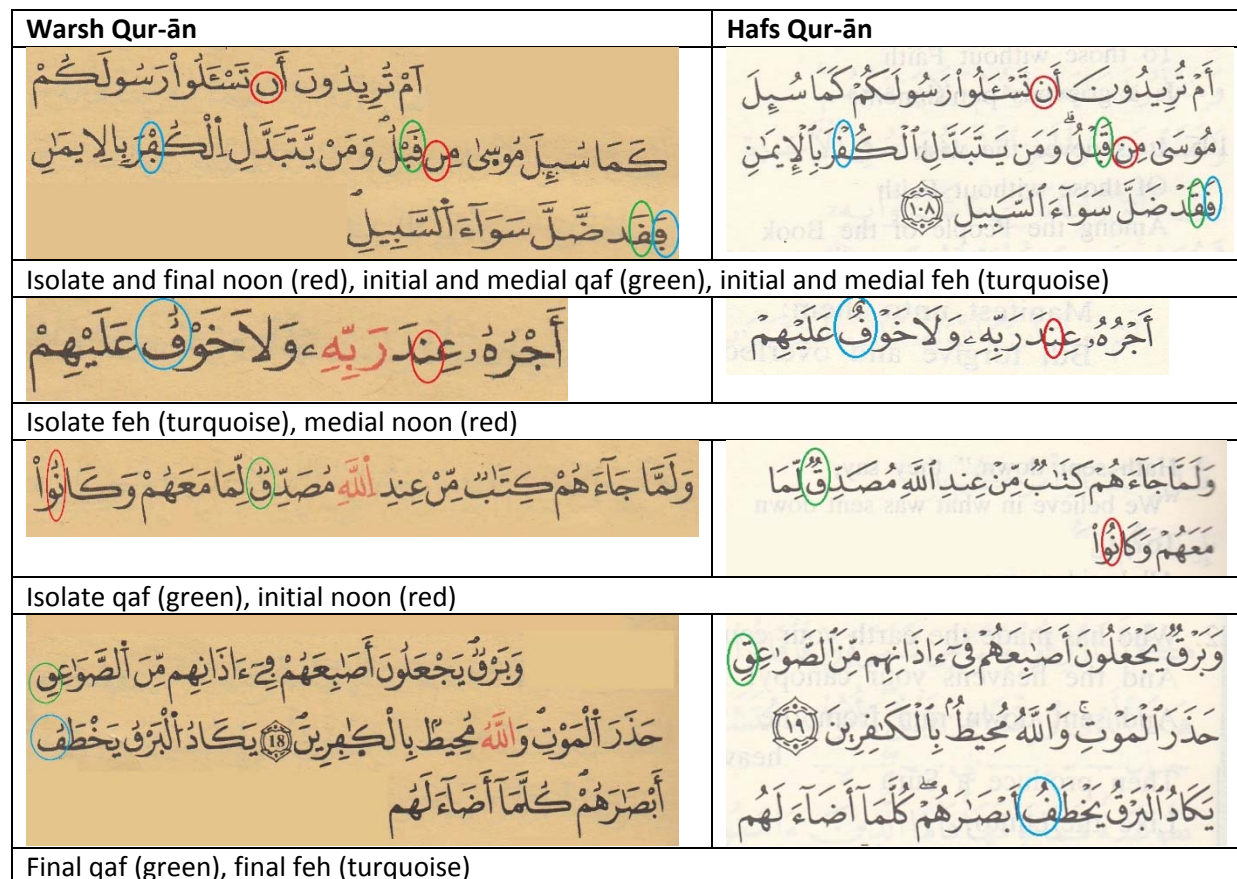 Warsh Qur-ān
Hafs Qur-ān
أَمْ تُرِيدُونَ أَن تَسْـَٔلُواْ رَسُولَكُمْ
كَمَا سُئِلَ مُوسىٰ مِن قَبْلُ وَمَنْ يَّتَبَدَّلِ اِ۬لْكُفْرَ بِالِايمَٰنِ
فَقَد ضَّلَّ سَوَآءَ اَ۬لسَّبِيلِ
أَمْ تُرِيدُونَ أَن تَسْـَٔلُواْ رَسُولَكُمْ كَمَا سُئِلَ
مُوسَىٰ مِن قَبْلُ ۗ وَمَن يَتَبَدَّلِ ٱلْكُفْرَ بِٱلْإِيمَٰنِ
فَقَدْ ضَلَّ سَوَآءَ ٱلسَّبِيلِ ١٠٨
Isolate and final noon (red), initial and medial qaf (green), initial and medial feh (turquoise)
أَجْرُهُۥ عِندَ رَبِّهِۦ وَلَا خَوْفٌ عَلَيْهِمْ
أَجْرُهُۥ عِندَ رَبِّهِۦ وَلَا خَوْفٌ عَلَيْهِمْ
Isolate feh (turquoise), medial noon (red)
وَلَمَّا جَآءَهُمْ كِتَٰبٌ مِّنْ عِندِ اِ۬للَّهِ مُصَدِّقٌ لِّمَا مَعَهُمْ وَكَانُواْ
وَلَمَّا جَآءَهُمْ كِتَٰبٌ مِّنْ عِندِ ٱللَّهِ مُصَدِّقٌ لِّمَا
مَعَهُمْ وَكَانُواْ
Isolate qaf (green), initial noon (red)
وَبَرْقٌ يَجْعَلُونَ أَصَٰبِعَهُمْ فِےٓ ءَاذَانِهِم مِّنَ اَ۬لصَّوَٰعِقِ
حَذَرَ اَ۬لْمَوْتِ وَاللَّهُ مُحِيطٌ بِالْكٰفِرِينَ 18 يَكَادُ اُ۬لْبَرْقُ يَخْطَفُ
أَبْصَٰرَهُمْ كُلَّمَآ أَضَآءَ لَهُم
وَبَرْقٌ يَجْعَلُونَ أَصَٰبِعَهُمْ فِىٓ ءَاذَانِهِم مِّنَ ٱلصَّوَٰعِقِ
حَذَرَ ٱلْمَوْتِ ۚ وَٱللَّهُ مُحِيطٌۢ بِٱلْكَٰفِرِينَ ١٩
يَكَادُ ٱلْبَرْقُ يَخْطَفُ أَبْصَٰرَهُمْ ۖ كُلَّمَآ أَضَآءَ لَهُم
Final qaf (green), final feh (turquoise)